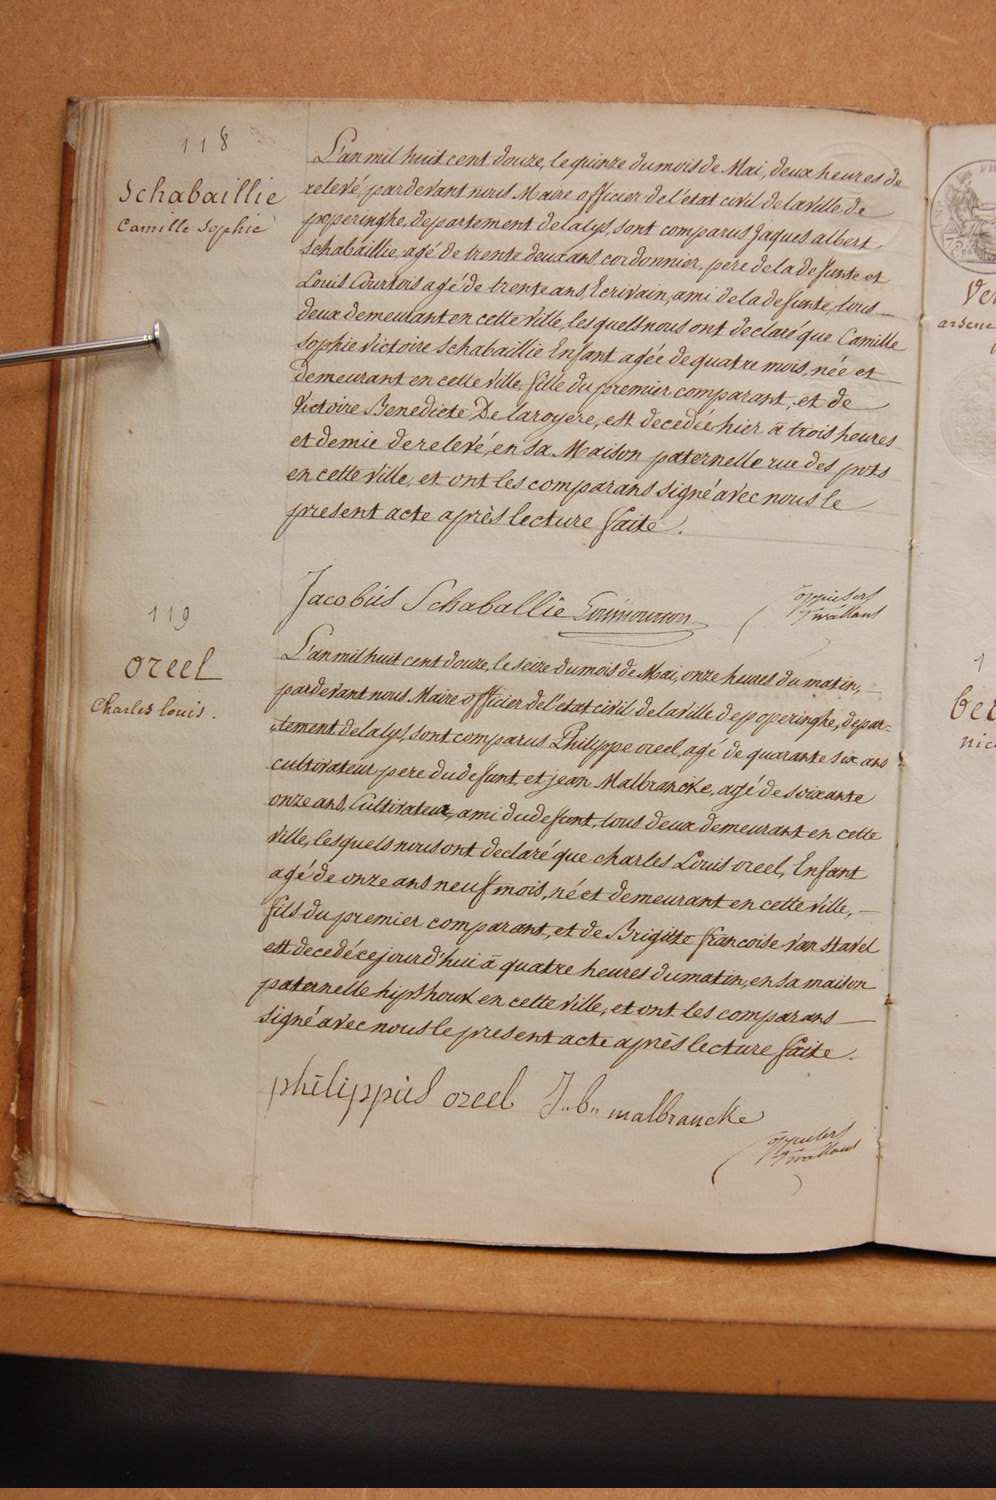 118
Schabaillie
Camille Sophie
L'an mil huit cent douze, le quinze du mois de Mai, deux heures de
relevé, pardevant nous Maire officier de l'etat civil de la ville de
poperinghe, departement de la lys, sont comparus Jaques albert
Schabaillie, agé de trente deux ans, cordonnier, pere de la defunte et
Louis Courtois agé de trente ans, Ecrivain, ami de la defunte, tous
deux demeurant en cette ville, lesquels nous ont declaré que Camille
Sophie Victoire Schabaillie Enfant agée de quatre mois, née et
demeurant en cette ville, fille du premier comparant, et de
Victoire Benedicte De laroyere, est decedée hier à trois heures
et demie de relevé, en sa Maison paternelle rue des pots
en cette ville, et ont les comparans signé avec nous le
present acte après lecture faite.
Jacobus Schaballie
119
oreel
Charles louis.
L'an mil huit cent douze, le seize du mois de Mai, onze heures du matin,
pardevant nous Maire officier de l'etat civil de la ville de poperinghe, depar-
tement de la lys, sont comparus Philippe oreel, agé de quarante six ans
cultivateur, pere du defunt, et jean Malbrancke, agé de soixante
onze ans, Cultivateur, ami du defunt, tous deux demeurant en cette
ville, lesquels nous ont declaré que charles Louis oreel, Enfant
agé de onze ans neuf mois, né et demeurant en cette ville,
fils du premier comparant, et de Brigitte francoise Van stavel
est decedé cejourd'hui à quatre heures du matin, en sa maison
paternelle hipshouk en cette ville, et ont les comparans
signé avec nous le present acte après lecture faite.
philippus oreel J. b. malbrancke
Ver
ber
nic